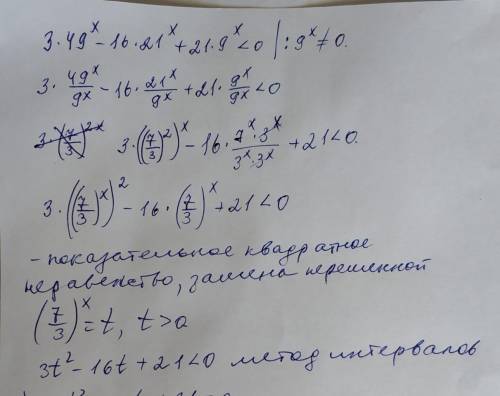 3·49^x − 16·21^x + 21·9^x < 0 | : 9^x ≠ 0.
3· 49^x/9^x − 16· 21^x/9^x + 21· 9^x/9^x < 0
3·((7/3)^2)^x − 16· 7^x·3^x/3^x·3^x + 21 < 0.
3·((7/3)^x)^2 − 16·(7/3)^x + 21 < 0
- показательное квадратное
неравенство, замена переменной
(7/3)^x = t, t > 0
3t^2 − 16t + 21 < 0 метод интервалов